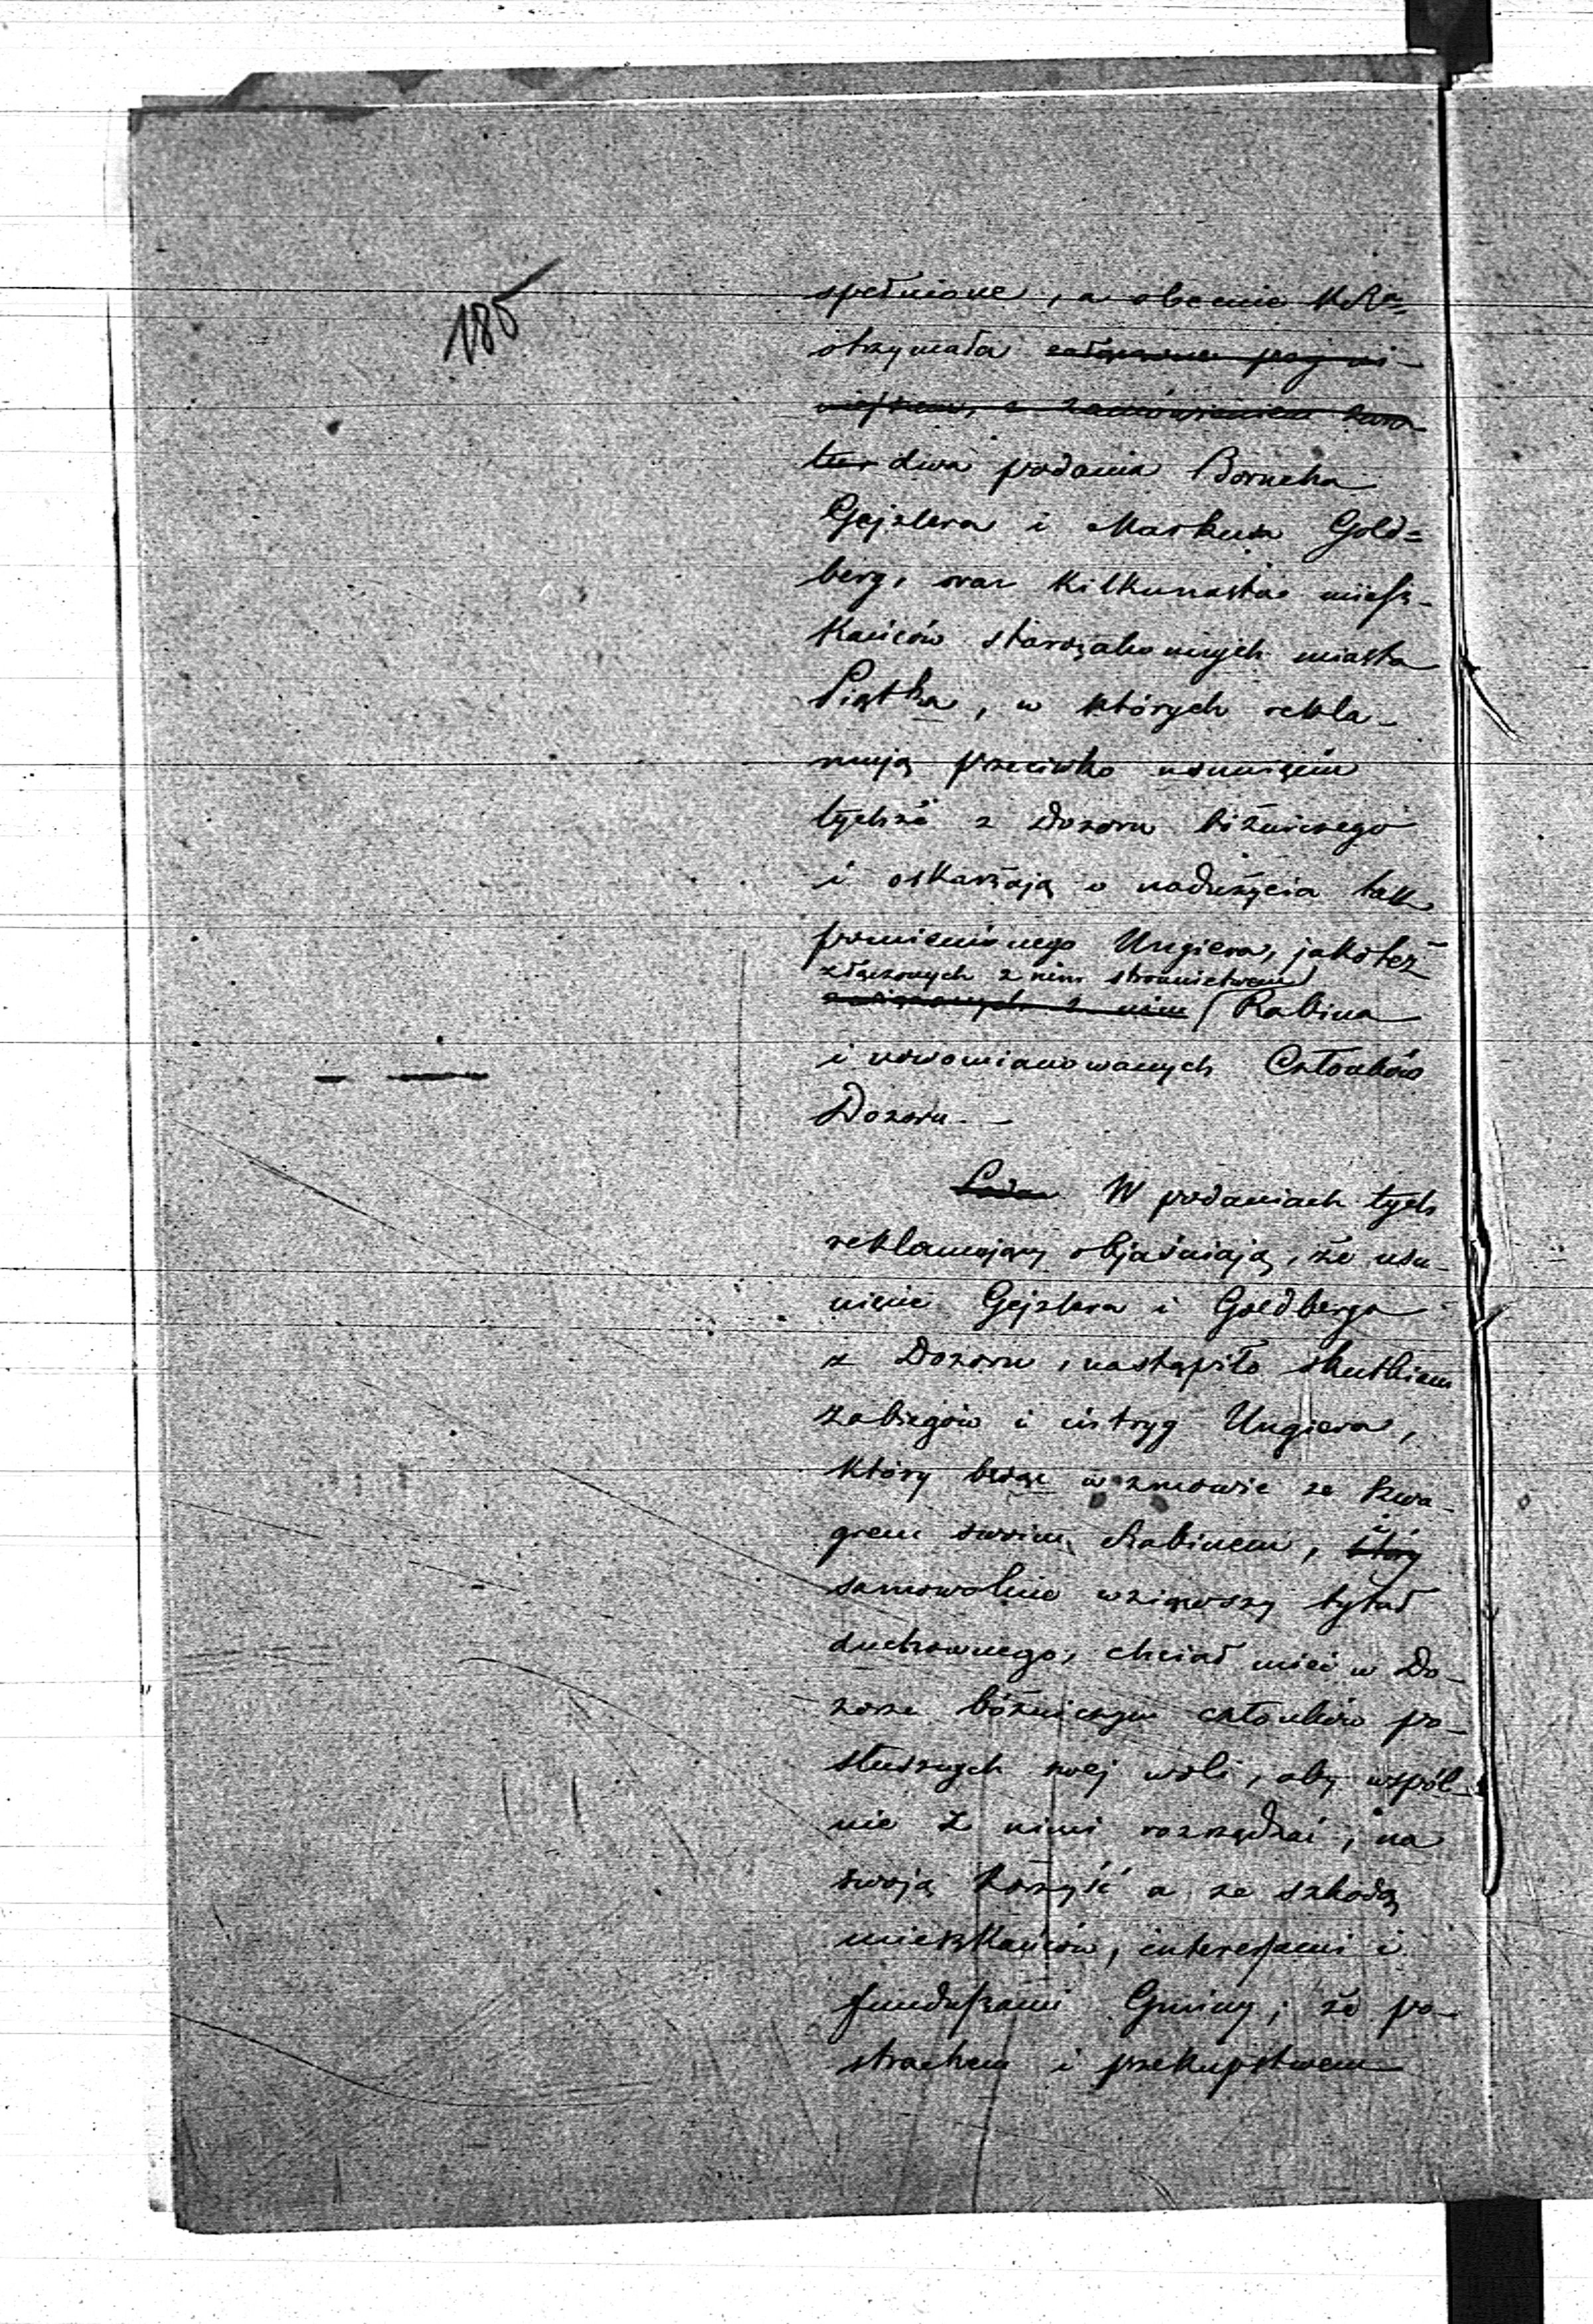 185
spełnione, a obecnie KRa
otrzymała załączone przy ni-
niejszem, z zamówieniem zwro
tu dwa podania Borucha
Gejzlera i Markusa Gold=
berg, oraz kilkunastu miesz-
kańców starozakonnych miasta
Piątka, w których rekla-
mują przeciwko usunięciu
tychże z Dozoru bóźniczego
i oskarżają o nadużycia tak
pomienionego Ungiera, jakoteż
złączonych z nim stronnictwem
związanych z nim Rabina
i nowomianowanych Członków
Dozoru.
W podaniach tych
reklamujący objaśniają, że usu-
nięcie Gejzlera i Goldberga
z Dozoru, nastąpiło skutkiem
zabiegów i intryg Ungiera,
który będąc w zmowie ze szwa-
grem swoim Rabinem, który
samowolnie wziąwszy tytuł
duchownego, chciał mieć w Do-
zorze bóźniczym członków po-
słusznych swej woli, aby wspól-
nie z nimi rozrządzać, na
swoją korzyść a ze szkodą
mieszkańców, interessami i
funduszami Gminy; że po-
strachem i przekupstwem